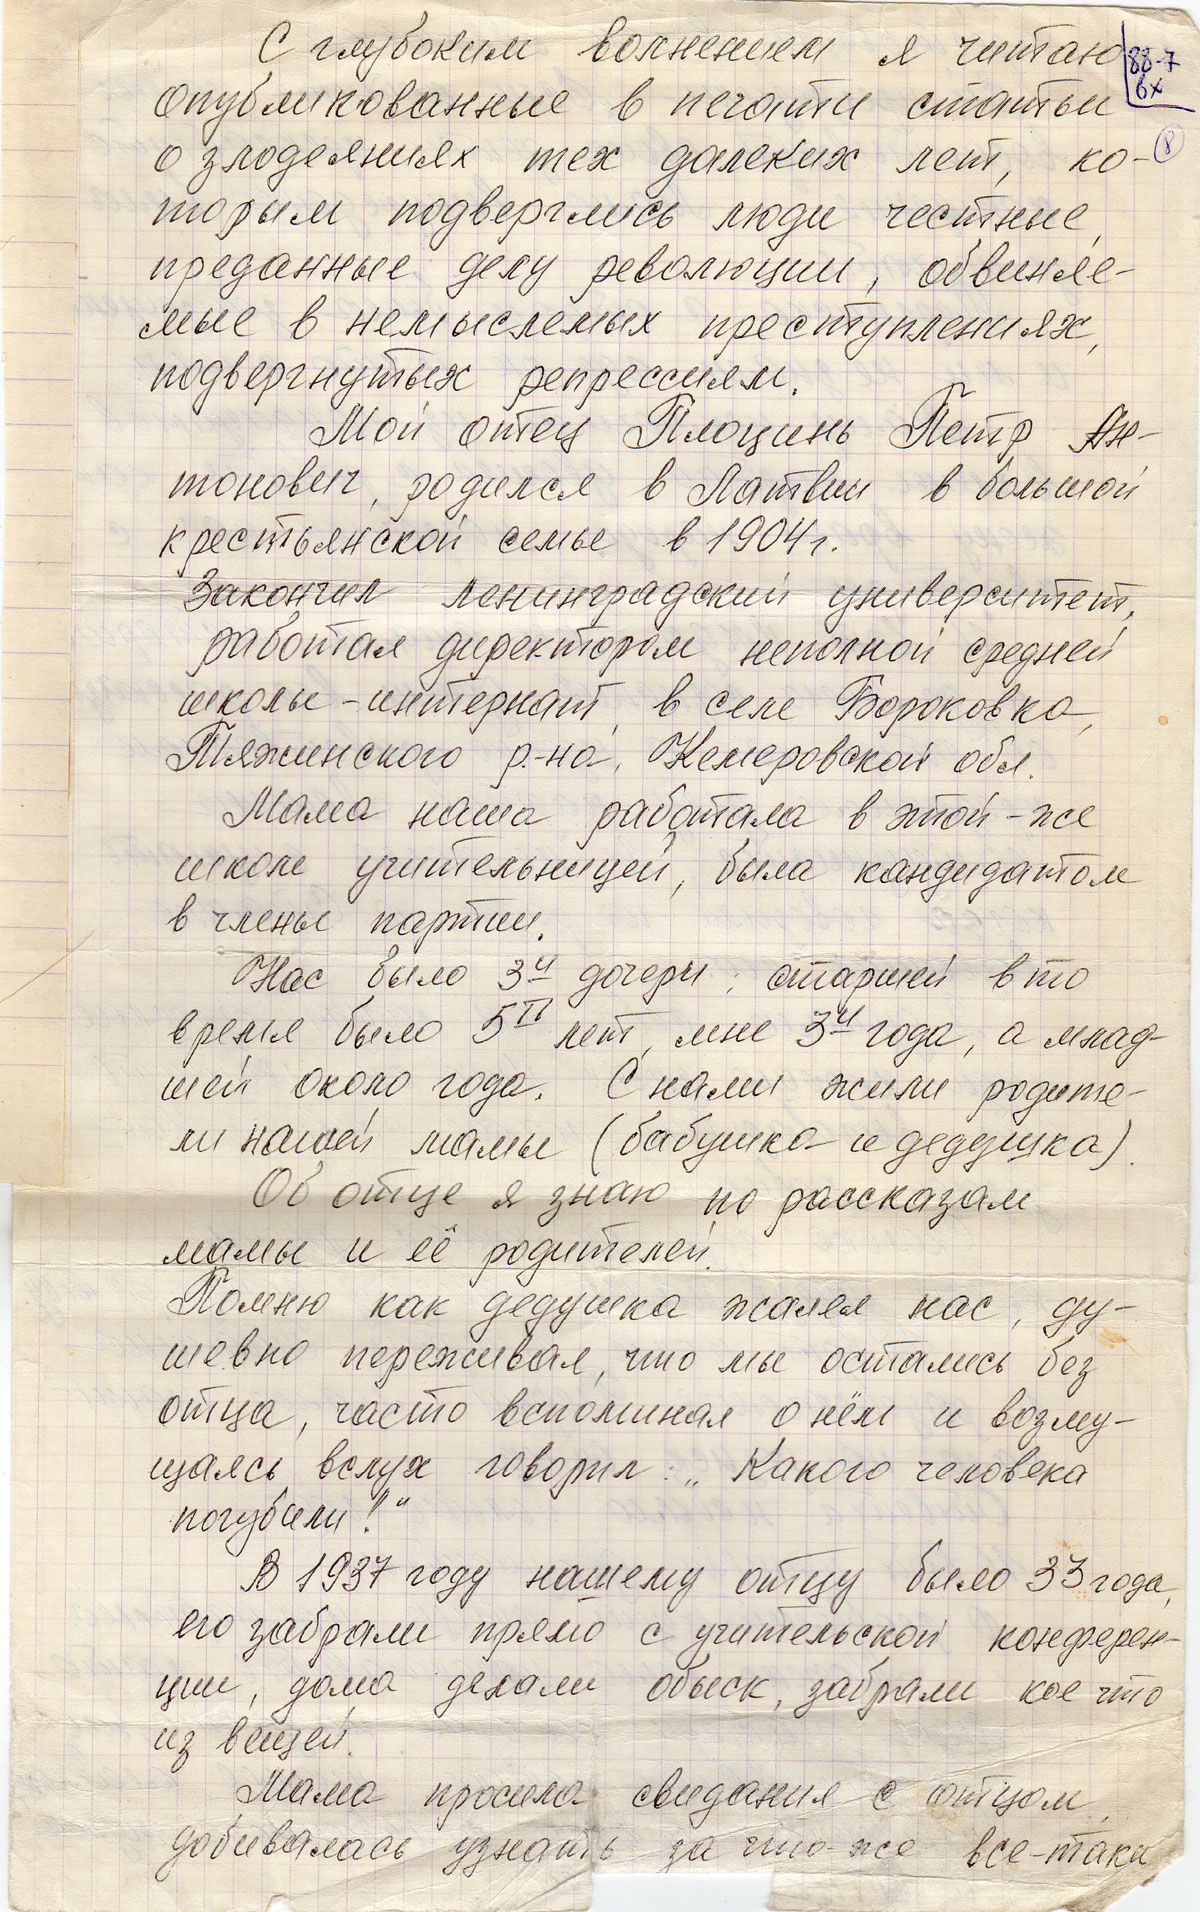 С глубоким волнением я читаю
88-7
вх
опубликованные в печати статьи
8
о злодеяниях тех далеких лет, ко-
торым подверглись люди честные,
преданные делу революции, обвиняе-
мые в немыслемых преступлениях,
подвергнутых репрессиям.
Мой отец Плоцинь Петр Ан-
тонович, родился в Латвии в большой
крестьянской семье в 1904 г.
Закончил ленинградский университет,
работал директором неполной средней
школы-интернат, в селе Бороковка,
Тяжинского р-на, Кемеровской обл.
Мама наша работала в этой-же
школе учительницей, была кандидатом
в члены партии.
Нас было 3и дочери: старшей в то
время было 5п лет, мне 3и года, а млад-
шей около года. С нами жили родите-
ли нашей мамы (бабушка и дедушка).
Об отце я знаю по рассказам
мамы и её родителей.
Помню как дедушка жалел нас, ду-
шевно переживал, что мы остались без
отца, часто вспоминал о нём и возму-
щаясь вслух говорил: „Какого человека
погубили!“
В 1937 году нашему отцу было 33 года,
его забрали прямо с учительской конферен-
ции, дома делали обыск, забрали кое что
из вещей.
Мама просила свидания с отцом,
добивалась узнать за что-же все-таки